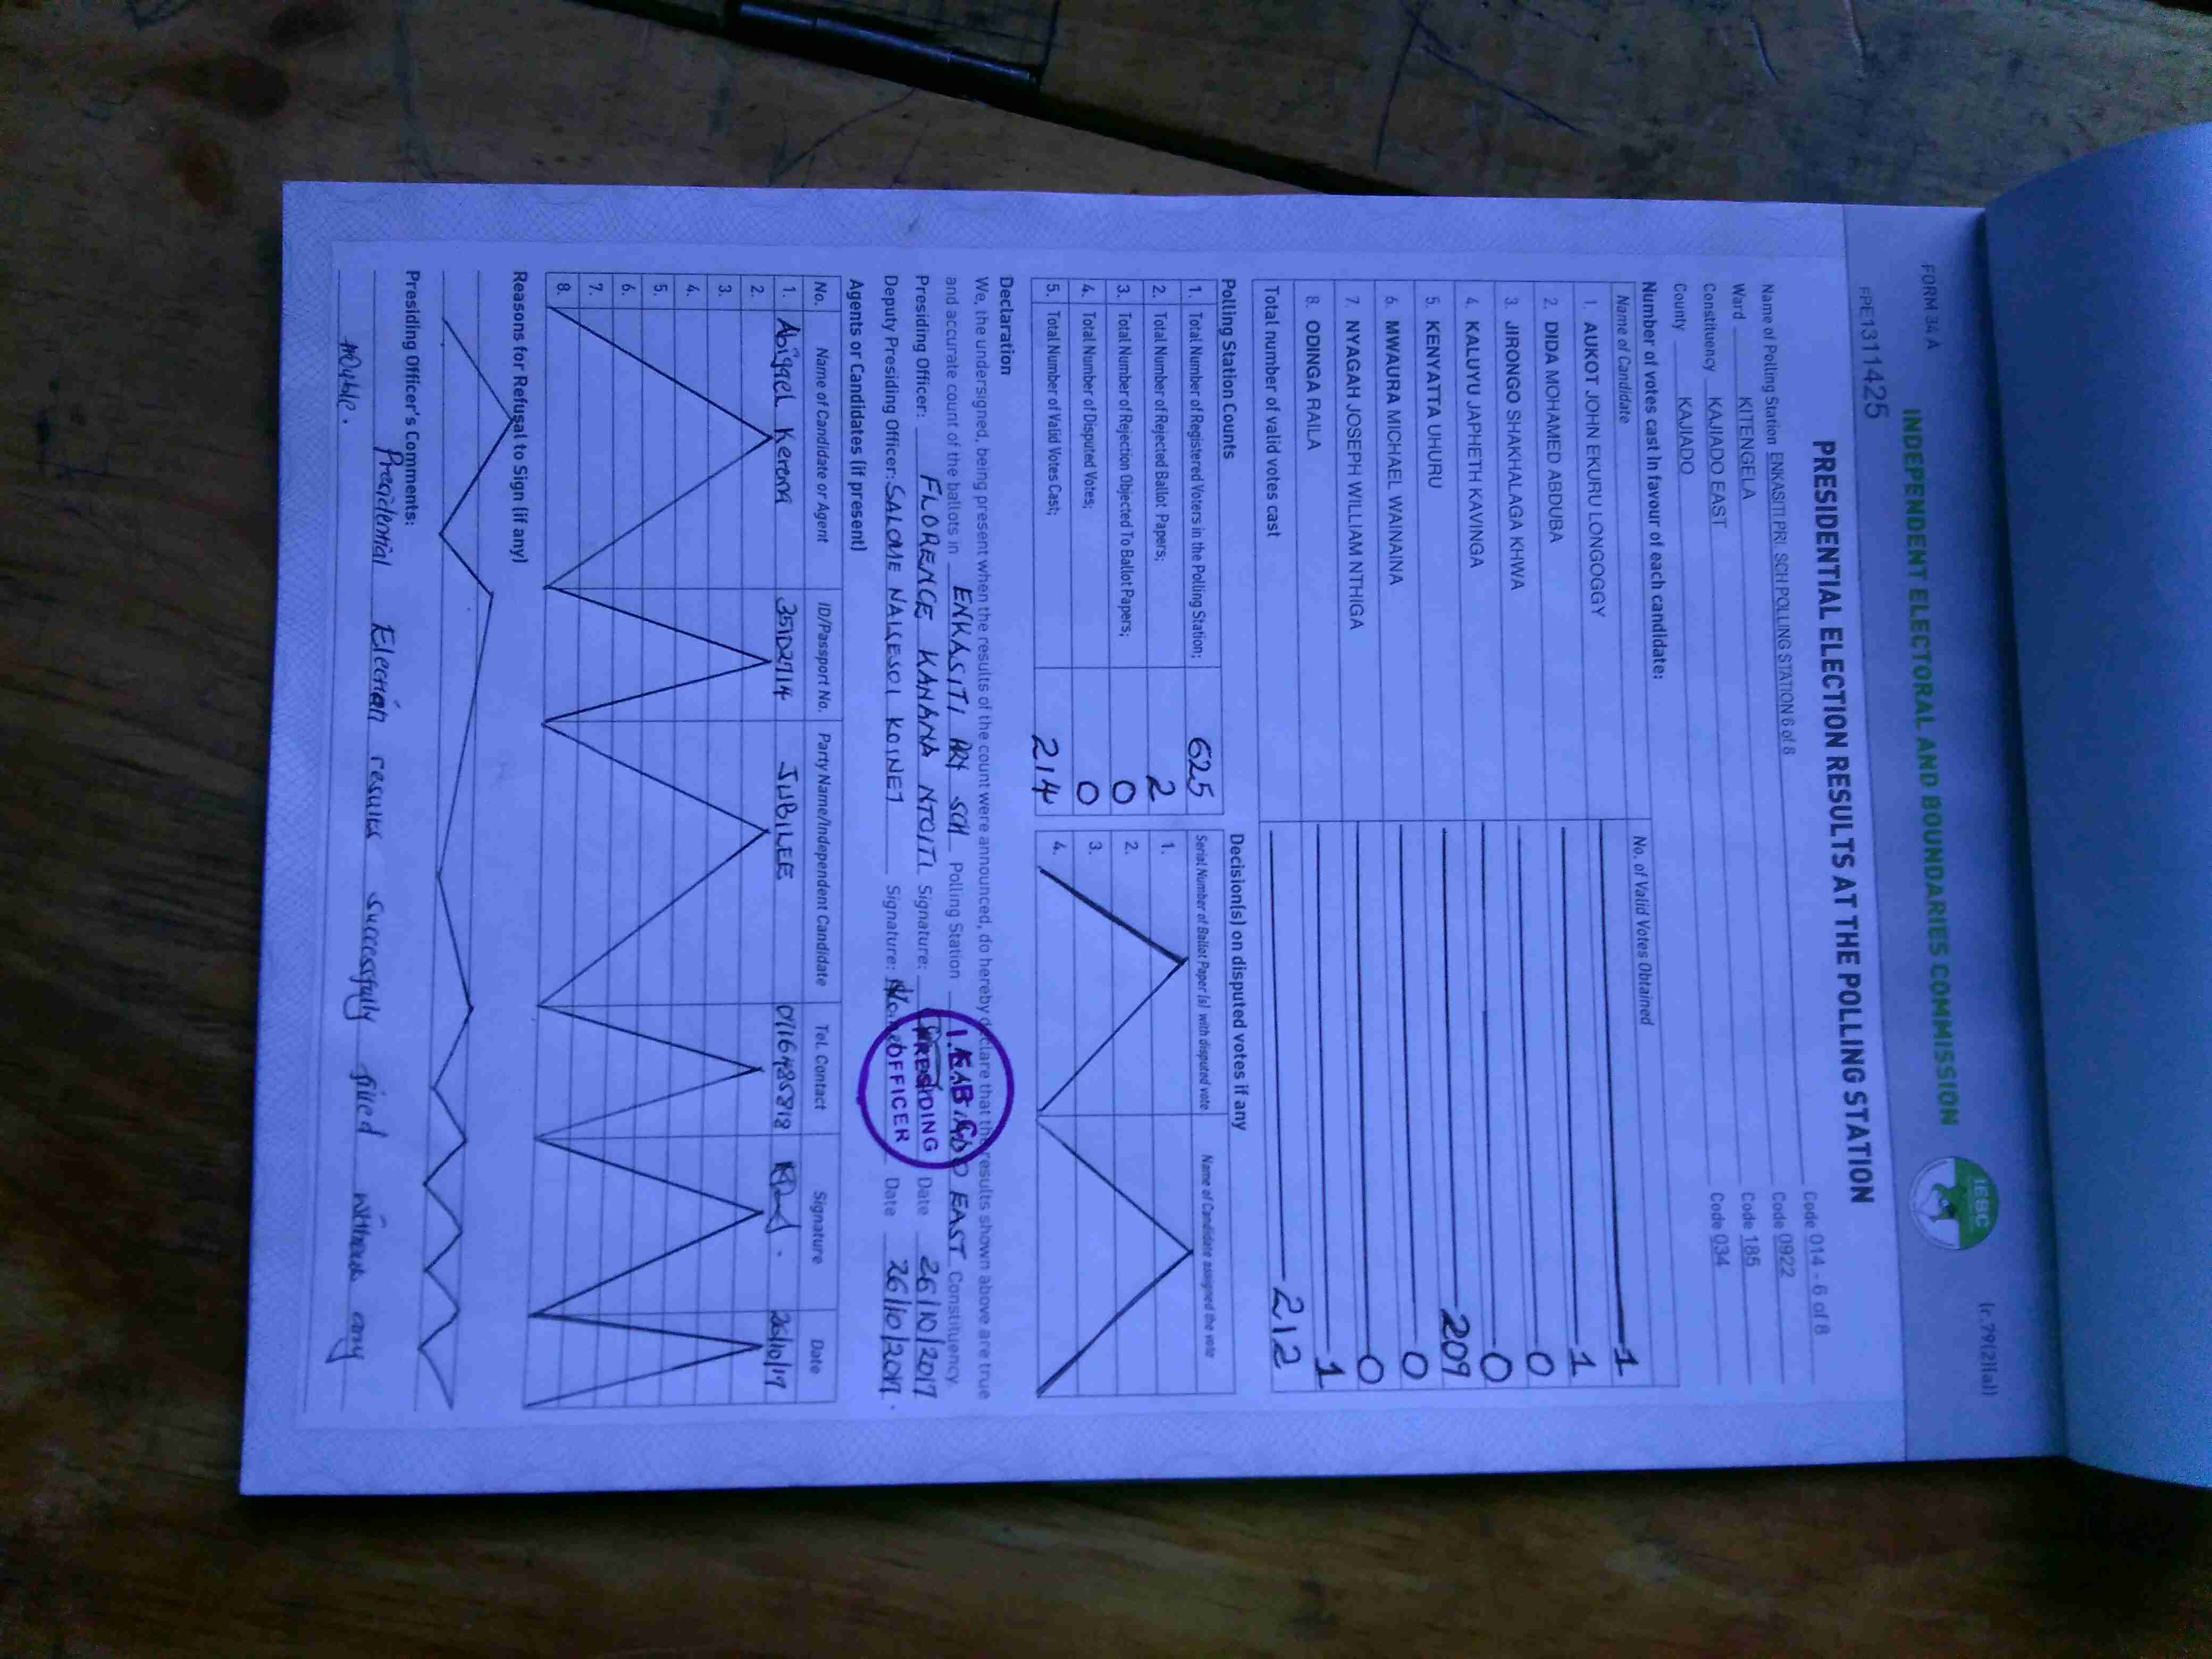 FORM 34 A
(r.79(2)(a))
INDEPENDENT ELECTORAL AND BOUNDARIES COMMISSION
IEBC
FPE1311425
PRESIDENTIAL ELECTION RESULTS AT THE POLLING STATION
Name of Polling Station ENKASITI PRI SCH POLLING STATION 6 of 8 Code 014 - 6 of 8
Ward KITENGELA Code 0922
Constituency KAJIADO EAST Code 185
County KAJIADO Code 034
Number of votes cast in favour of each candidate:
Name of Candidate No. of Valid Votes Obtained
1. AUKOT JOHN EKURU LONGOGGY 1
2. DIDA MOHAMED ABDUBA 1
3. JIRONGO SHAKHALAGA KHWA 0
4. KALUYU JAPHETH KAVINGA 0
5. KENYATTA UHURU 209
6. MWAURA MICHAEL WAINAINA 0
7. NYAGAH JOSEPH WILLIAM NTHIGA 0
8. ODINGA RAILA 1
Total number of valid votes cast 212
Polling Station Counts
1. Total Number of Registered Voters in the Polling Station; 625
2. Total Number of Rejected Ballot Papers; 2
3. Total Number of Rejection Objected To Ballot Papers; 0
4. Total Number of Disputed Votes; 0
5. Total Number of Valid Votes Cast; 214
Decision(s) on disputed votes if any
Serial Number of Ballot Paper (s) with disputed vote Name of Candidate assigned the vote
1.
2.
3.
4.
Declaration
We, the undersigned, being present when the results of the count were announced, do hereby declare that the results shown above are true
and accurate count of the ballots in ENKASITI PRY SCH Polling Station KAJIADO EAST Constituency.
Presiding Officer: FLORENCE KANANA NTOITI Signature: Date 26/10/2017
Deputy Presiding Officer: SALOME NAISESOI KOINET Signature: Date 26/10/2017.
I.E.B.C
PRESIDING
OFFICER
Agents or Candidates (if present)
No. Name of Candidate or Agent ID/Passport No. Party Name/Independent Candidate Tel. Contact Signature Date
1. Abigael Kerema JUBILEE 26/10/17
2.
3.
4.
5.
6.
7.
8.
Reasons for Refusal to Sign (if any)
Presiding Officer's Comments:
Presidential Election results successfully filled without any
trouble.